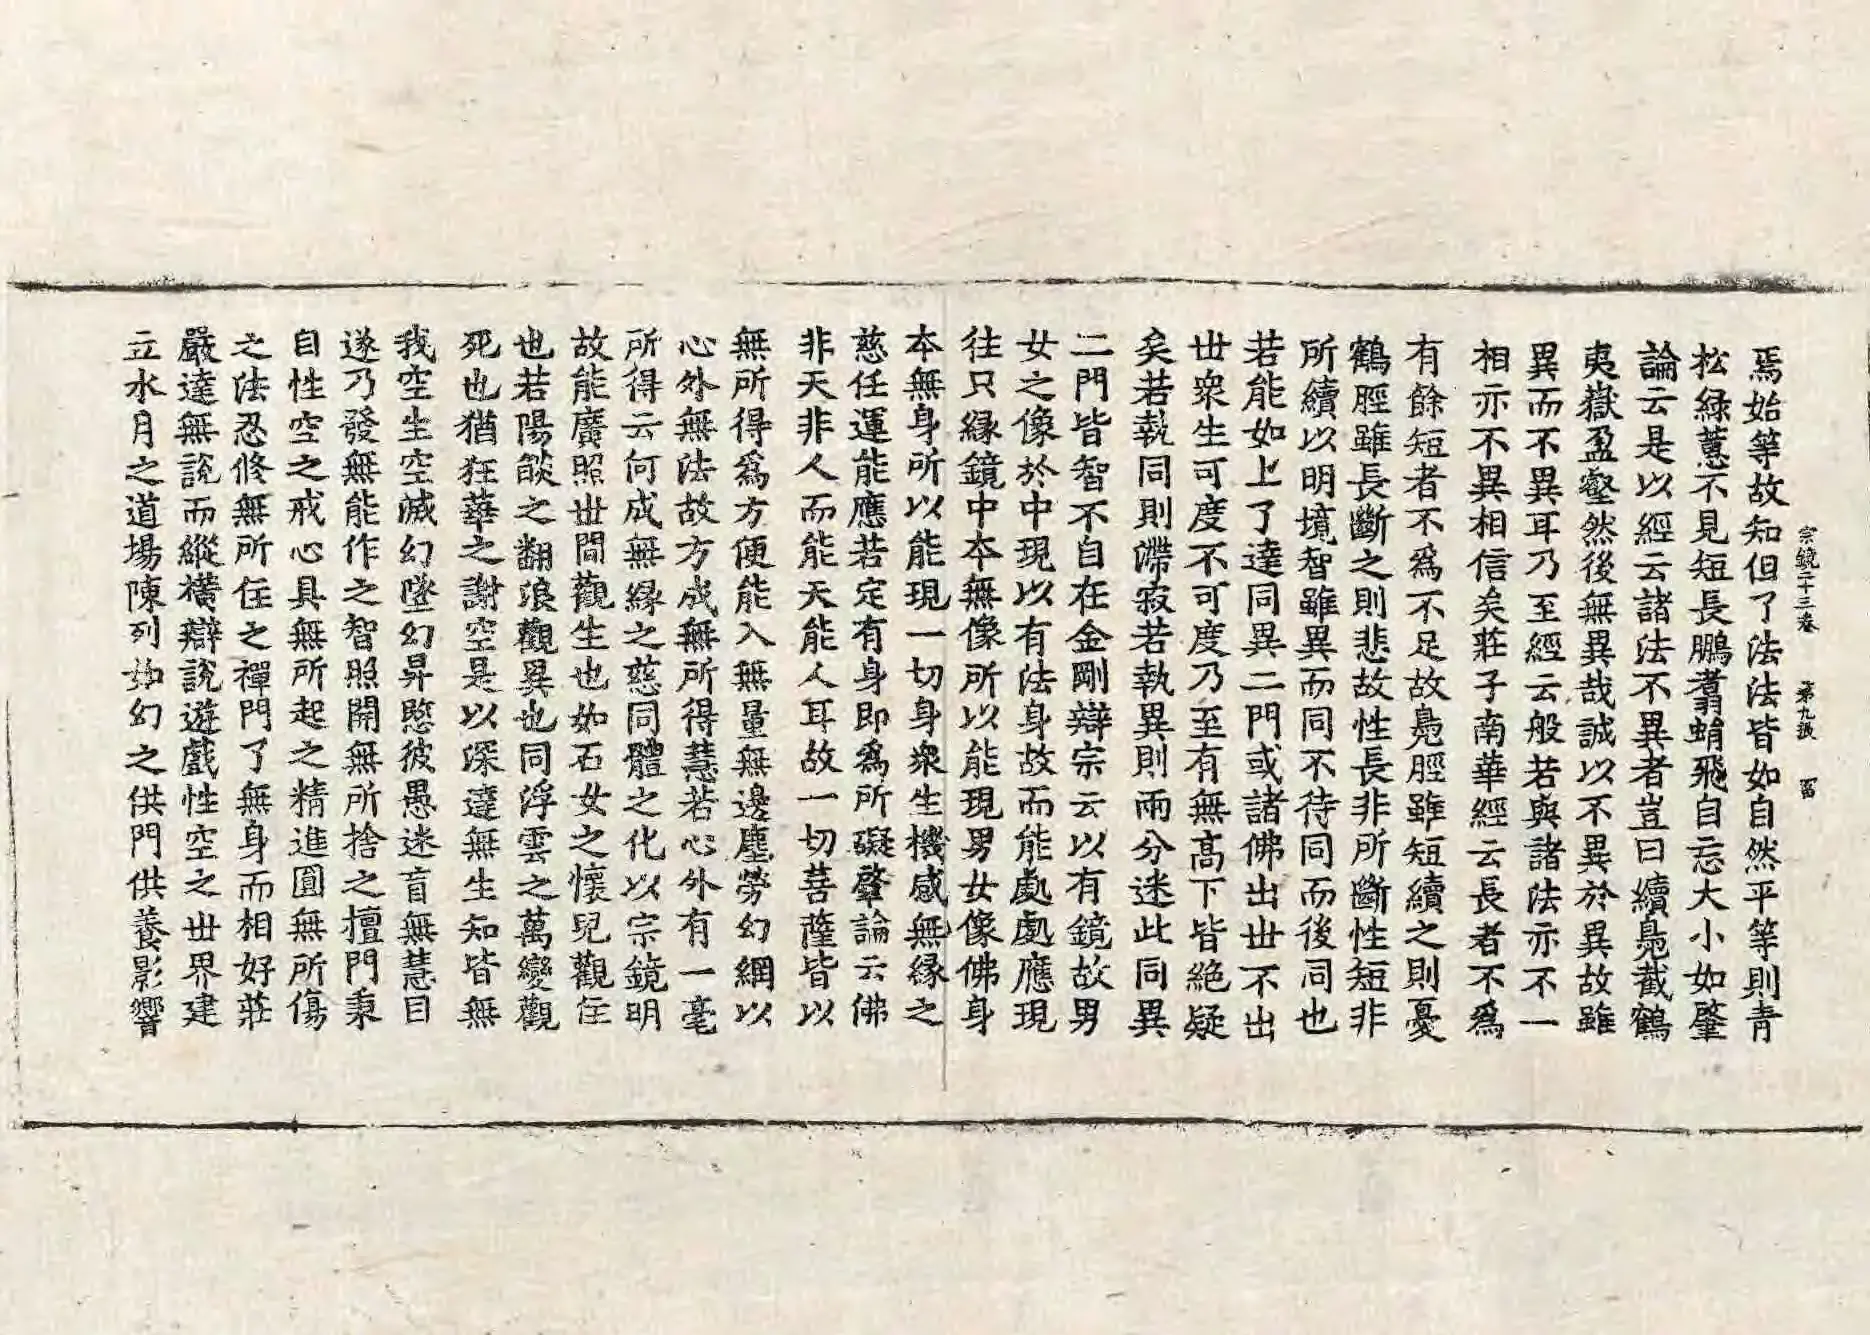 宗鏡二十三卷 第九張 富
焉始等故知但了法法皆如自然平等則青
松綠蕙不見短長鵬翥蜎飛自忘大小如肇
論云是以經云諸法不異者豈曰續鳧截鶴
夷嶽盈壑然後無異哉誠以不異於異故雖
異而不異耳乃至經云般若與諸法亦不一
相亦不異相信矣莊子南華經云長者不爲
有餘短者不爲不足故鳧脛雖短續之則憂
鶴脛雖長斷之則悲故性長非所斷性短非
所續以明境智雖異而同不待同而後同也
若能如上了達同異二門或諸佛出世不出
世衆生可度不可度乃至有無高下皆絕疑
矣若執同則滯寂若執異則兩分迷此同異
二門皆智不自在金剛辯宗云以有鏡故男
女之像於中現以有法身故而能處處應現
往只緣鏡中本無像所以能現男女像佛身
本無身所以能現一切身衆生機感無緣之
慈任運能應若定有身即爲所礙肇論云佛
非天非人而能天能人耳故一切菩薩皆以
無所得爲方便能入無量無邊塵勞幻網以
心外無法故方成無所得慧若心外有一毫
所得云何成無緣之慈同體之化以宗鏡明
故能廣照世間觀生也如石女之懷兒觀住
也若陽燄之翻浪觀異也同浮雲之萬變觀
死也猶狂華之謝空是以深達無生知皆無
我空生空滅幻墜幻昇愍彼愚迷盲無慧目
遂乃發無能作之智照開無所捨之檀門秉
自性空之戒心具無所起之精進圓無所傷
之法忍修無所住之禪門了無身而相好莊
嚴達無說而縱橫辯說遊戲性空之世界建
立水月之道場陳列如幻之供門供養影響